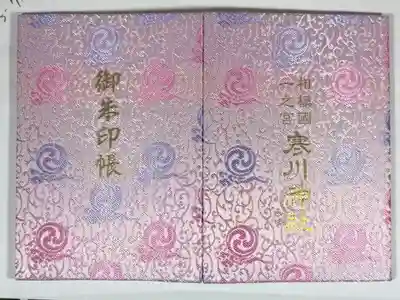 相模國
一之宮
寒川神社
御朱印帳